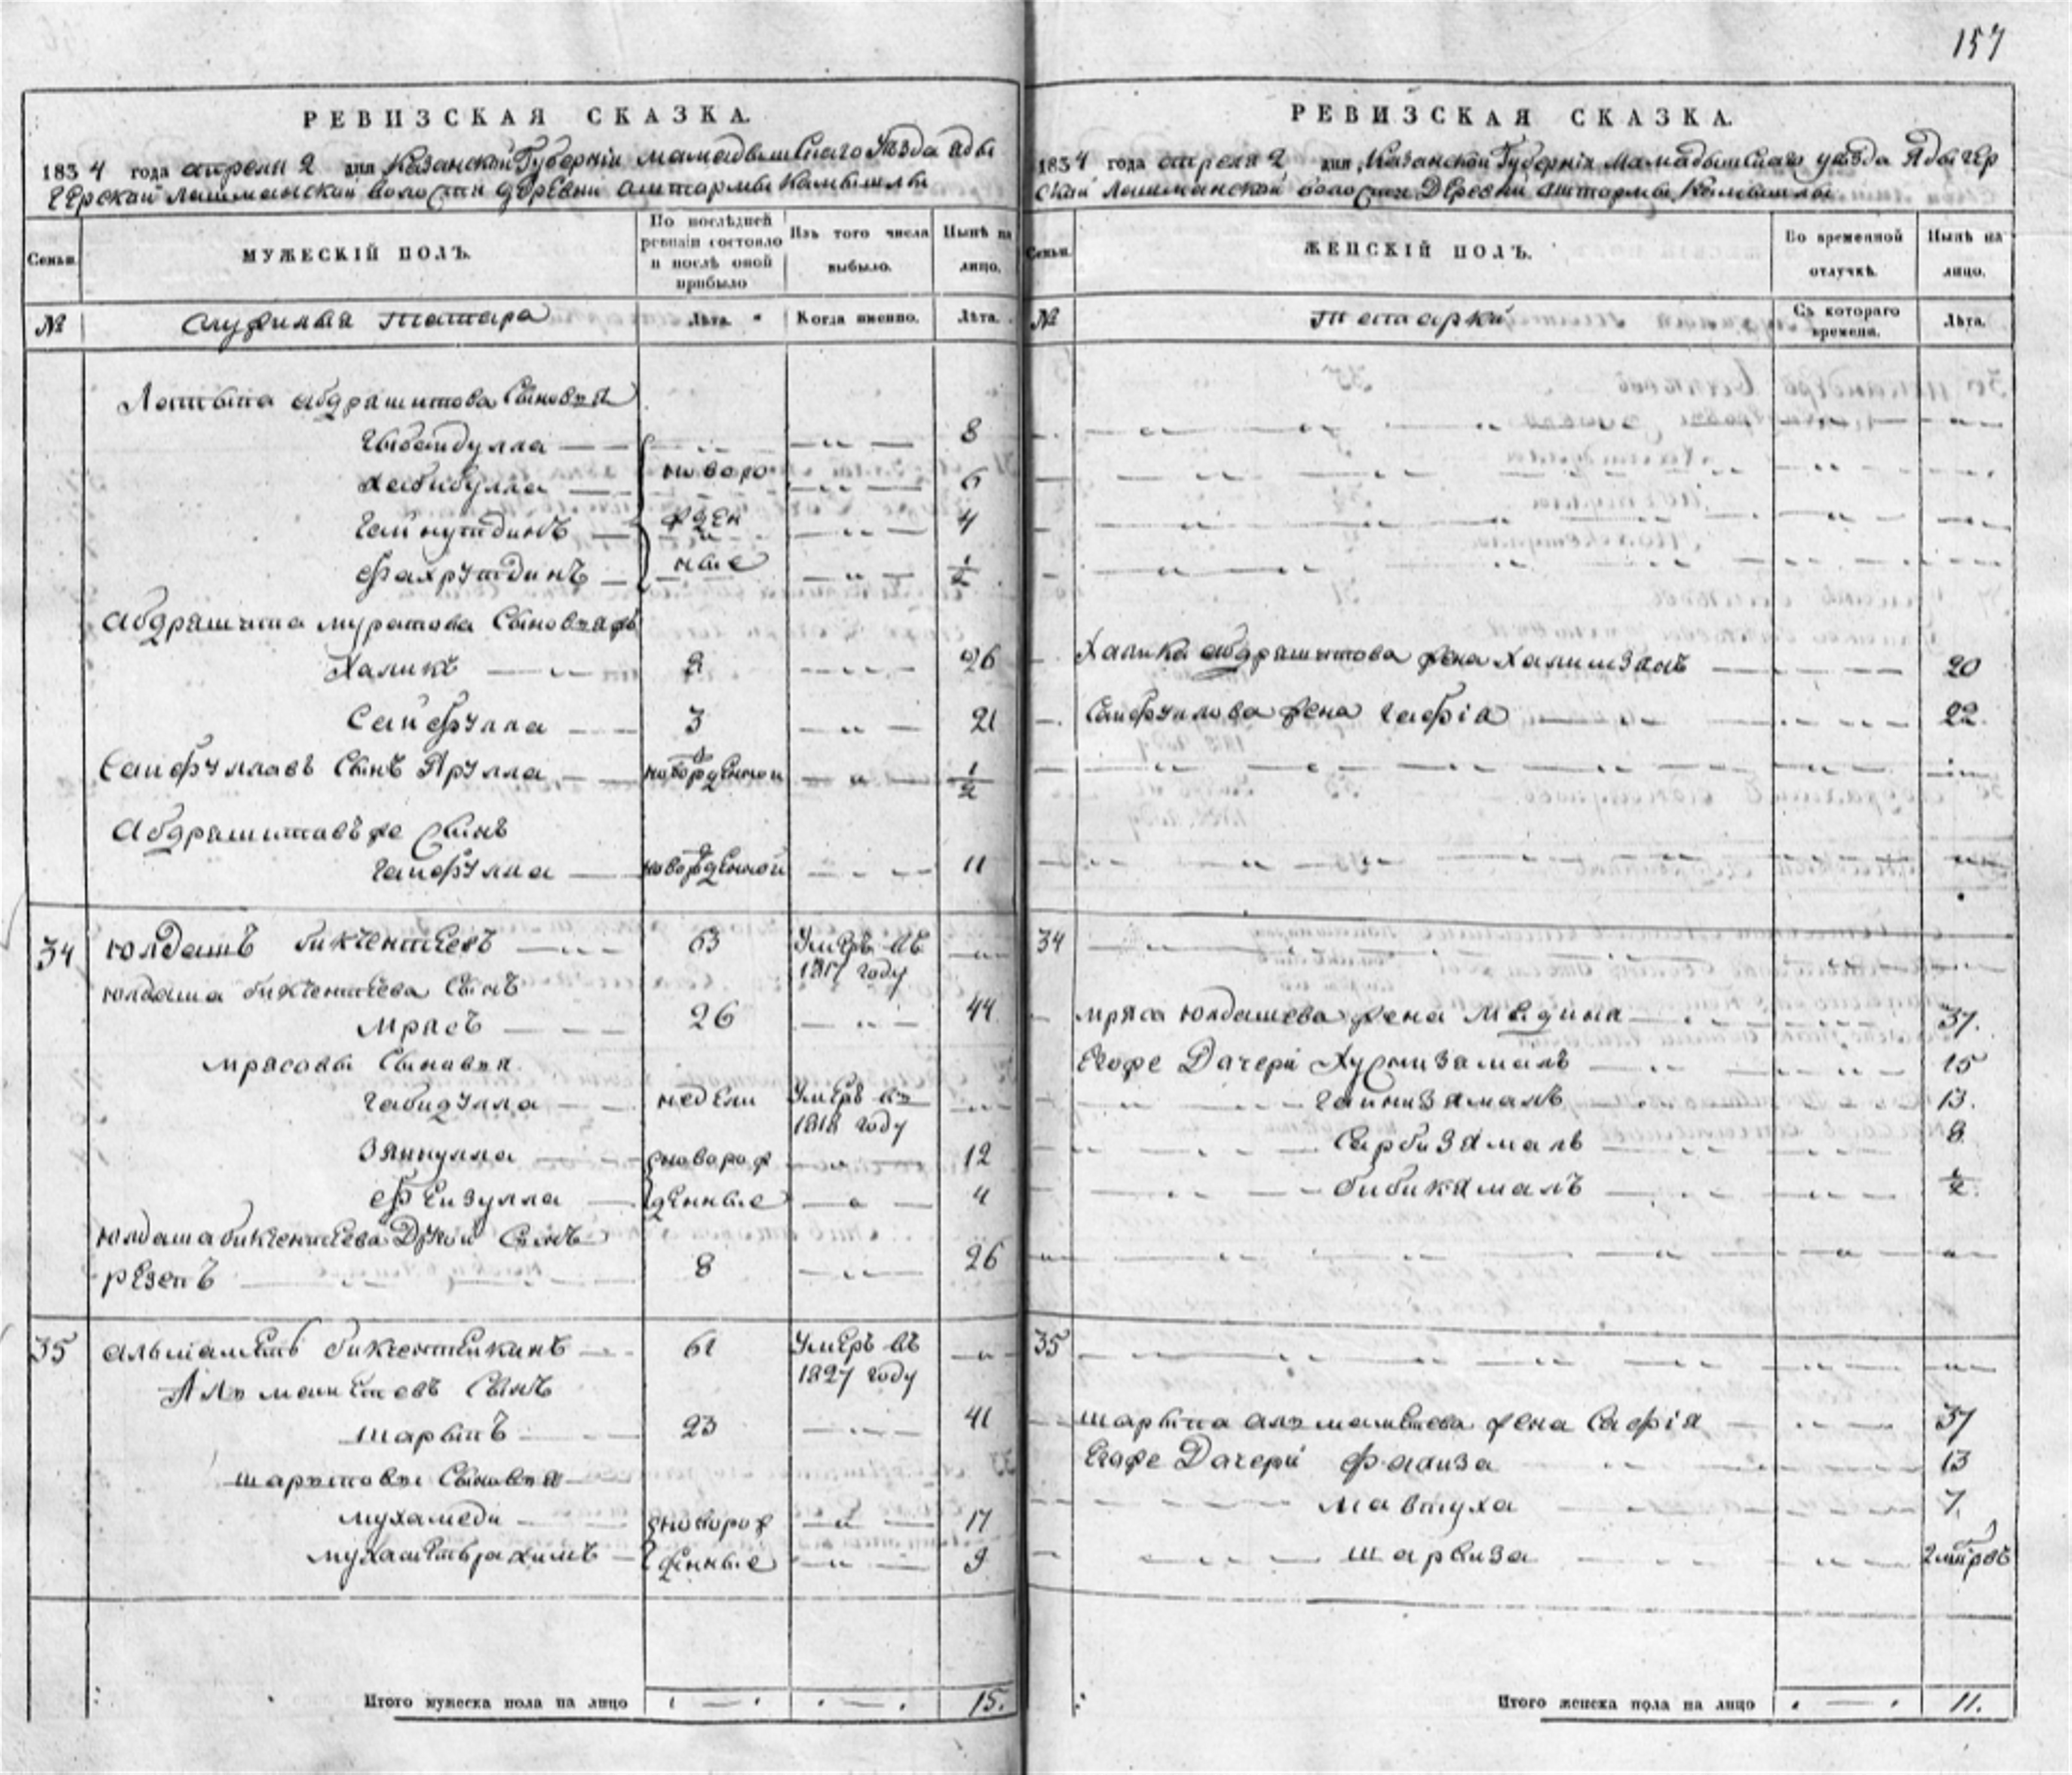 157
РЕВИЗСКАЯ СКАЗКА.
1834 года апреля 2 дня Казанской Губернiи мамадышскаго Уѣзда ады
черской лашманской волости деревни аттармы камышлы
Семьи.
МУЖЕСКIЙ ПОЛЪ.
По послѣдней ревизiи состояло и послѣ оной прибыло
Изъ того числа выбыло.
Нынѣ на лицо.
№
служилыя татара
Лѣта.
Когда именно.
Лѣта.
Латыпа абдрашитова Сыновья
Гибатулла — 8
Хабибулла — новоро 6
Гайнутдинъ — жден 4
Фахрутдинъ — ные 1/2
абдрашита муратова Сыновьяжъ
Халикъ — 8 — 26
Сайфулла — 3 — 21
Сайфуллавъ Сынъ Ярулла — новорожденной — 1/2
Абдрашитавъ же Сынъ
Гайфулла — новорожденной — 11
34 юлдашъ бикчентѣевъ — 63 Умеръ въ
1817 году
юлдаша бикчентѣева Сынъ
мрясъ — 26 — 44
мрясовы Сыновья
Габидулла — недели Умеръ въ
1818 году
Зяннулла — новорож — 12
Феизулла — денные — 4
юлдаша бикчентѣева Другой Сынъ
резепъ — 8 — 26
35 альмаметь бикчентейкинъ — 61 Умеръ въ
1827 году
Альмаметевъ Сынъ
шарыпъ — 23 — 41
шарыповы Сыновья
мухамеди — новорож — 17
мухаметьрахимъ — денные — 9
Итого мужеска пола на лицо 15.
РЕВИЗСКАЯ СКАЗКА.
1834 года апреля 2 дня, Казанской Губернiя Мамадышскаго уѣзда Адычер
ской Лашманской волости Деревни аттармы камышлы
Семьи.
ЖЕНСКIЙ ПОЛЪ.
Во временной отлучкѣ.
Нынѣ на лицо.
№
Татарки
Съ котораго времени.
Лѣта.
Халика абдрашитова жена Халимзянъ — 20
Сайфуллова жена Гафiя — 22
34
мряса юлдашева жена Мѣдина — 37.
Егоже Дочери Хуснизамалъ — 15
Гайнизямалъ — 13.
Сарбизямалъ — 8
бибикямалъ — 1/2
35
шарыпа альмаметева жена Сафiя — 37
Егоже Дочери Фаиза — 13
Мавтуха — 7.
шарвиза —
Итого женска пола на лицо 11.